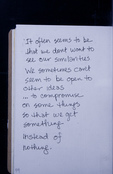 It often seems to be
that we don't want to
see our similarities
We sometimes can't
seem to be open to
other ideas
... to compromise
on some things
so that we get
something
instead of
nothing.